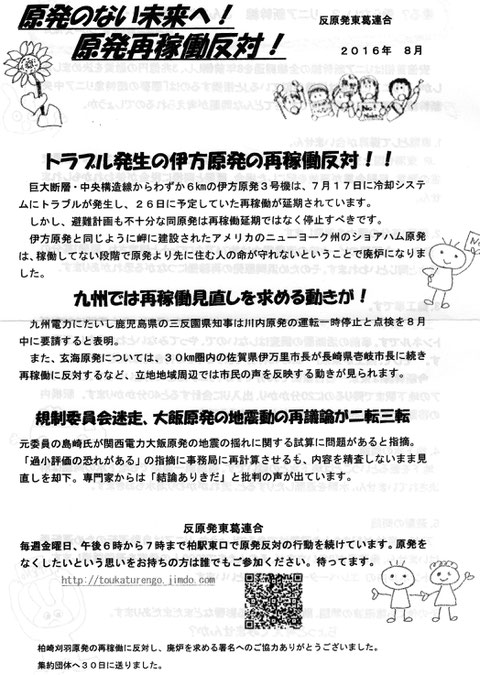 原発のない未来へ！
原発再稼働反対！
反原発東葛連合
２０１６年　８月
トラブル発生の伊方原発の再稼働反対！！
巨大断層・中央構造線からわずか６㎞の伊方原発３号機は、７月１７日に冷却システ
ムにトラブルが発生し、２６日に予定していた再稼働が延期されています。
しかし、避難計画も不十分な同原発は再稼働延期ではなく停止すべきです。
伊方原発と同じように岬に建設されたアメリカのニューヨーク州のショアハム原発
は、稼働してない段階で原発より先に住む人の命が守れないということで廃炉になりま
した。
九州では再稼働見直しを求める動きが！
九州電力にたいし鹿児島県の三反園県知事は川内原発の運転一時停止と点検を８月
中に要請すると表明。
また、玄海原発については、３０㎞圏内の佐賀県伊万里市長が長崎県壱岐市長に続き
再稼働に反対するなど、立地地域周辺では市民の声を反映する動きが見られます。
規制委員会迷走、大飯原発の地震動の再議論が二転三転
元委員の島崎氏が関西電力大飯原発の地震の揺れに関する試算に問題があると指摘。
「過小評価の恐れがある」の指摘に事務局に再計算させるも、内容を精査しないまま見
直しを却下。専門家からは「結論ありきだ」と批判の声が出ています。
反原発東葛連合
毎週金曜日、午後６時から７時まで柏駅東口で原発反対の行動を続けています。原発を
なくしたいという思いをお持ちの方は誰でもご参加ください。待ってます。
http://toukaturengo.jimdo.com
柏崎刈羽原発の再稼働に反対し、廃炉を求める署名へのご協力ありがとうございました。
集約団体へ３０日に送りました。